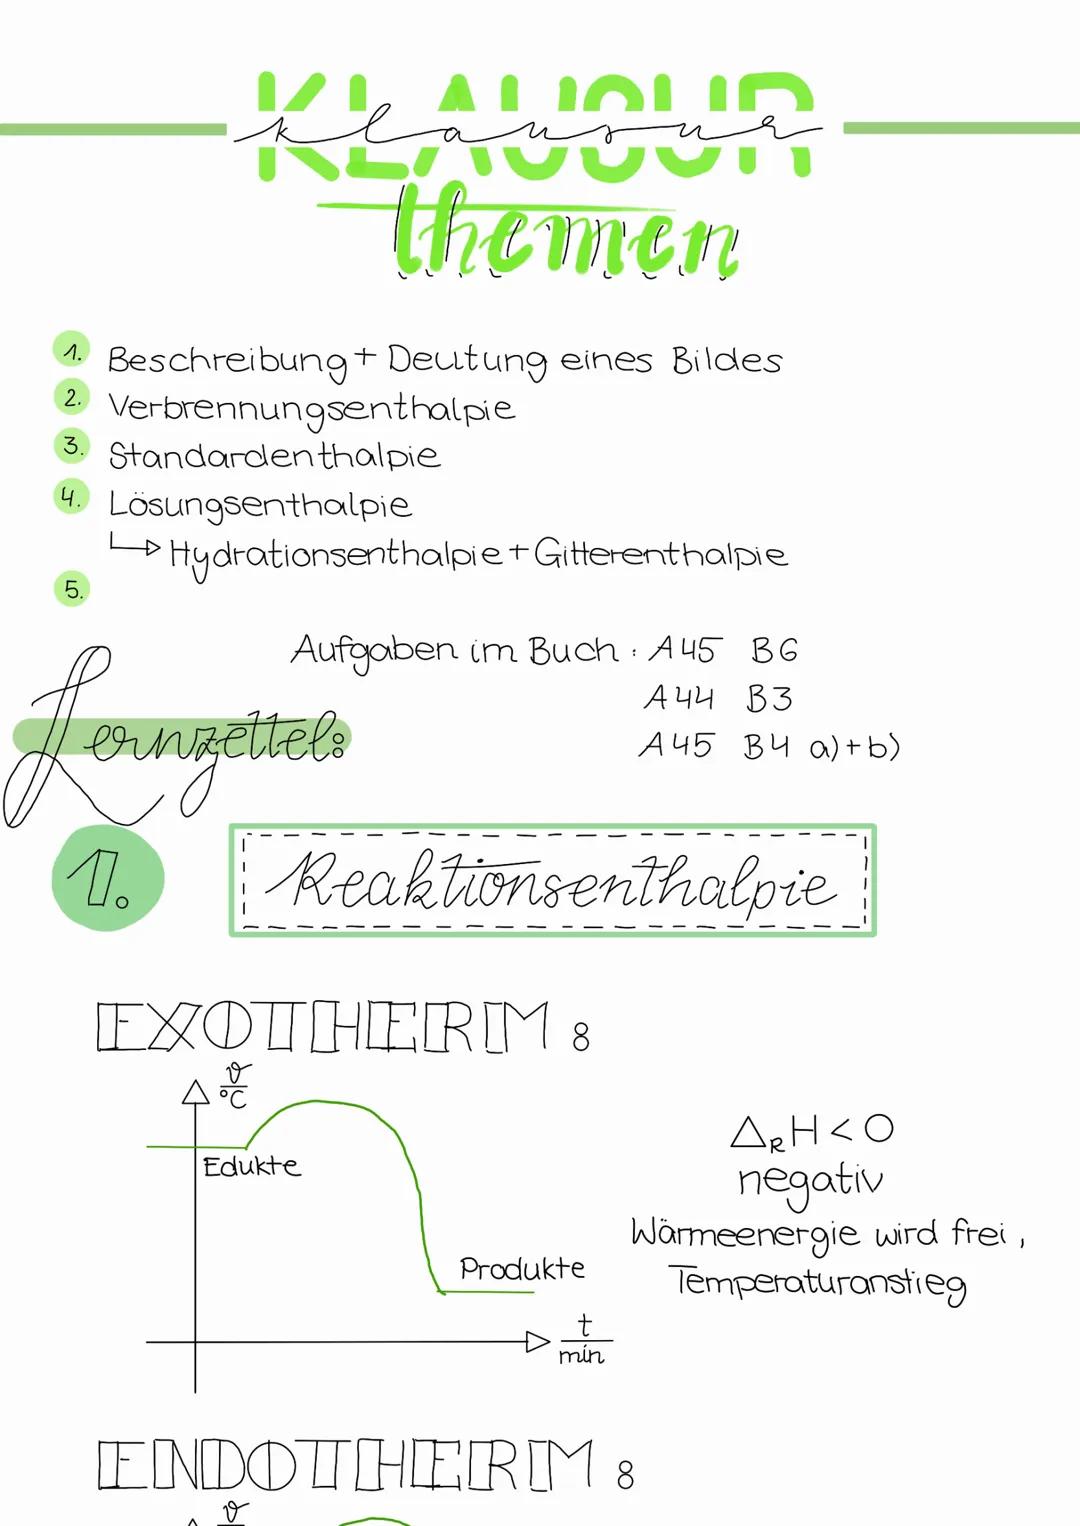 KLAUSUR
klausur
themen
1. Beschreibung + Deutung eines Bildes
2. Verbrennungsenthalpie
3. Standardenthalpie
4. Lösungsenthalpie
↳ Hydrationsenthalpie + Gitterenthalpie
5.
Aufgaben im Buch : A45 B6
A44 B3
A45 B4 a)+b)
Lernzettel:
1. Reaktionsenthalpie
EXOTHERM :
ϑ
°C
Edukte
Produkte
t
min
Δ_R H < 0
negativ
Wärmeenergie wird frei,
Temperaturanstieg
ENDOTHERM :
ϑ